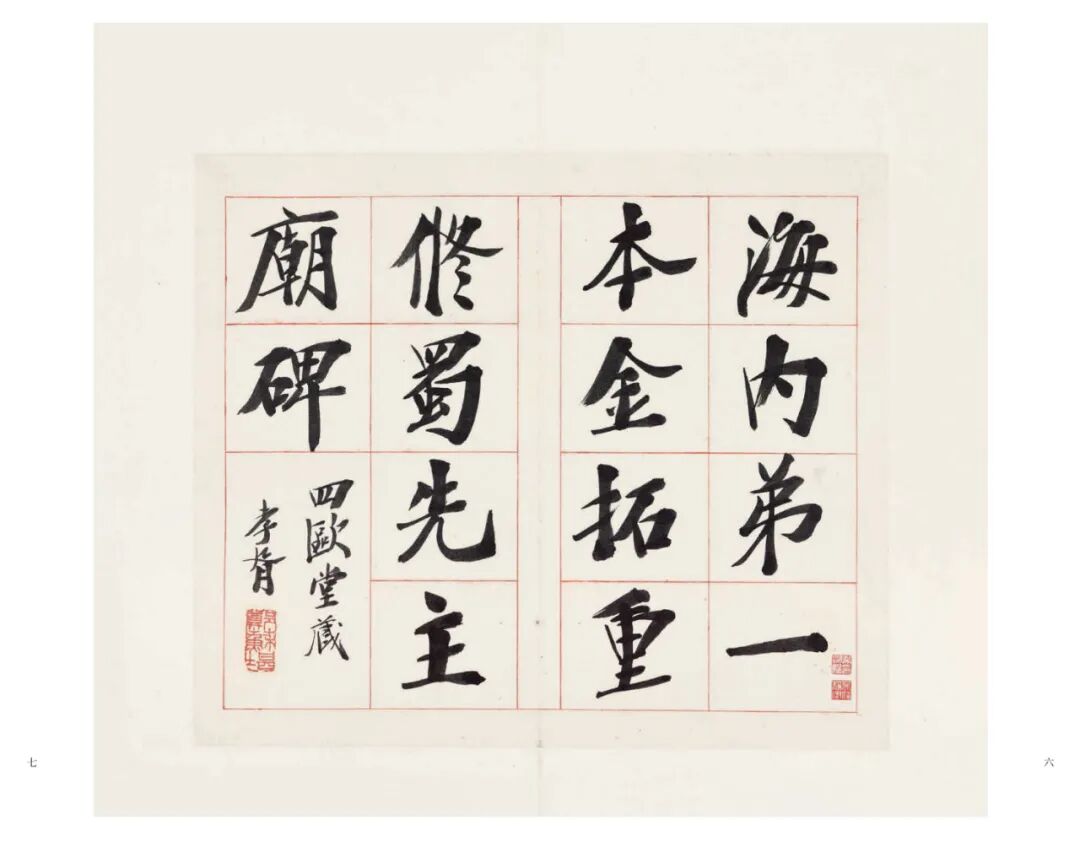 海内弟一
本金拓重
修蜀先主
廟碑
四歐堂藏
孝胥
六
七